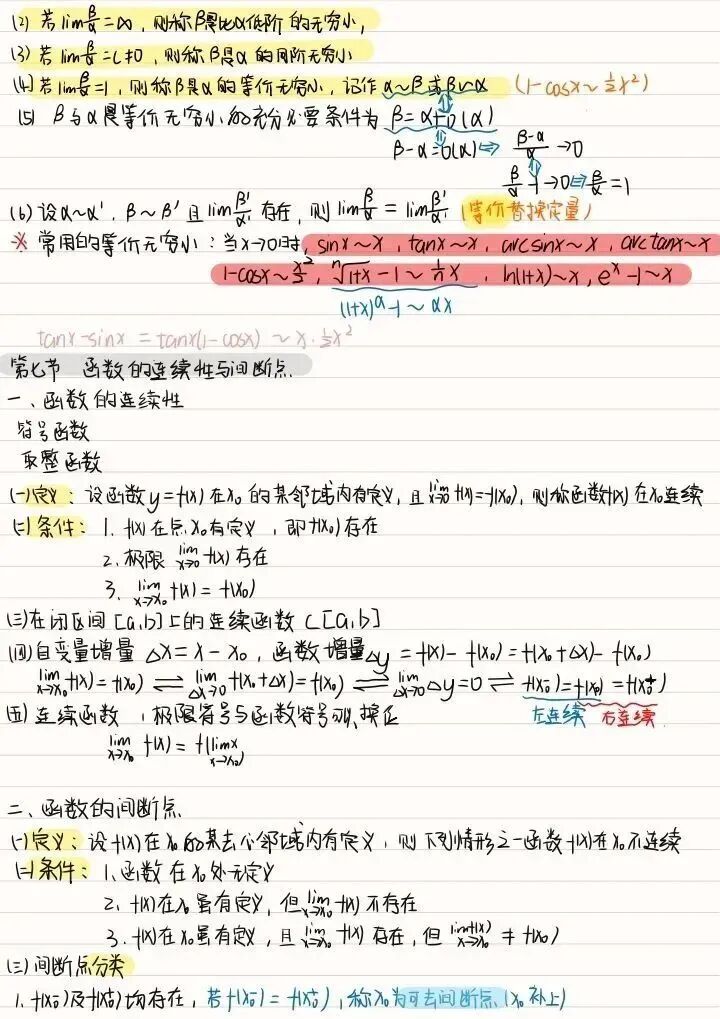 (2) 若lim β/α = ∞, 则称β是比α低阶的无穷小,
(3) 若lim β/α = C ≠ 0, 则称β是α的同阶无穷小
(4) 若lim β/α = 1, 则称β是α的等价无穷小, 记作 α~β 或 β~α (1-cosx ~ ½x²)
(5) β与α是等价无穷小的充分必要条件为 β = α + o(α)
β-α = o(α) ⇔ (β-α)/α → 0
β/α - 1 → 0 ⇔ β/α = 1
(6) 设α~α', β~β' 且 lim β'/α' 存在, 则 lim β/α = lim β'/α' (等价替换定量)
※ 常用的等价无穷小: 当x→0时, sinx~x, tanx~x, arcsinx~x, arctanx~x
1-cosx ~ x²/2, ⁿ√(1+x) - 1 ~ 1/n x, ln(1+x)~x, eˣ-1~x
(1+x)ᵅ-1 ~ αx
tanx-sinx = tanx(1-cosx) ~ x·½x²
第七节 函数的连续性与间断点.
一、函数的连续性
符号函数
取整函数
(一)定义: 设函数y=f(x)在x₀的某邻域内有定义, 且lim x→0 f(x)=f(x₀), 则称函数f(x)在x₀连续
(二)条件: 1. f(x)在点x₀有定义, 即f(x₀)存在
2. 极限 lim x→0 f(x)存在
3. lim x→x₀ f(x) = f(x₀)
(三)在闭区间[a,b]上的连续函数 C[a,b]
(四)自变量增量 Δx = x - x₀, 函数增量Δy = f(x) - f(x₀) = f(x₀+Δx) - f(x₀)
lim x→x₀ f(x) = f(x₀) ⇌ lim Δx→0 f(x₀+Δx) = f(x₀) ⇌ lim Δx→0 Δy=0 ⇌ f(x₀⁻)=f(x₀)=f(x₀⁺)
(五)连续函数, 极限符号与函数符号可换位 左连续 右连续
lim x→x₀ f(x) = f(lim x→x₀ x)
二、函数的间断点.
(一)定义: 设f(x)在x₀的某去心邻域内有定义, 则下列情形之一函数f(x)在x₀不连续
(二)条件: 1. 函数在x₀处无定义
2. f(x)在x₀虽有定义, 但lim x→x₀ f(x)不存在
3. f(x)在x₀虽有定义, 且lim x→x₀ f(x)存在, 但lim x→x₀ f(x) ≠ f(x₀)
(三)间断点分类
1. f(x₀⁻)及f(x₀⁺)均存在, 若f(x₀⁻) = f(x₀⁺), 称x₀为可去间断点(x₀补上)